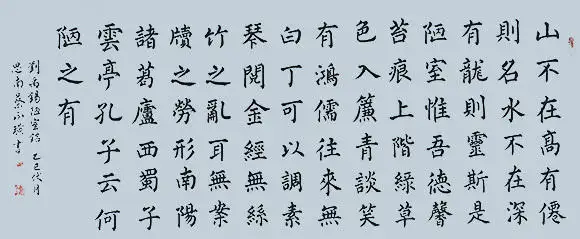 山不在高有僊
則名水不在深
有龍則靈斯是
陋室惟吾德馨
苔痕上階綠草
色入簾青談笑
有鴻儒往來無
白丁可以調素
琴閱金經無絲
竹之亂耳無案
牘之勞形南陽
諸葛廬西蜀子
雲亭孔子云何
陋之有
劉禹錫陋室銘 乙巳伏月
思南蔡永書